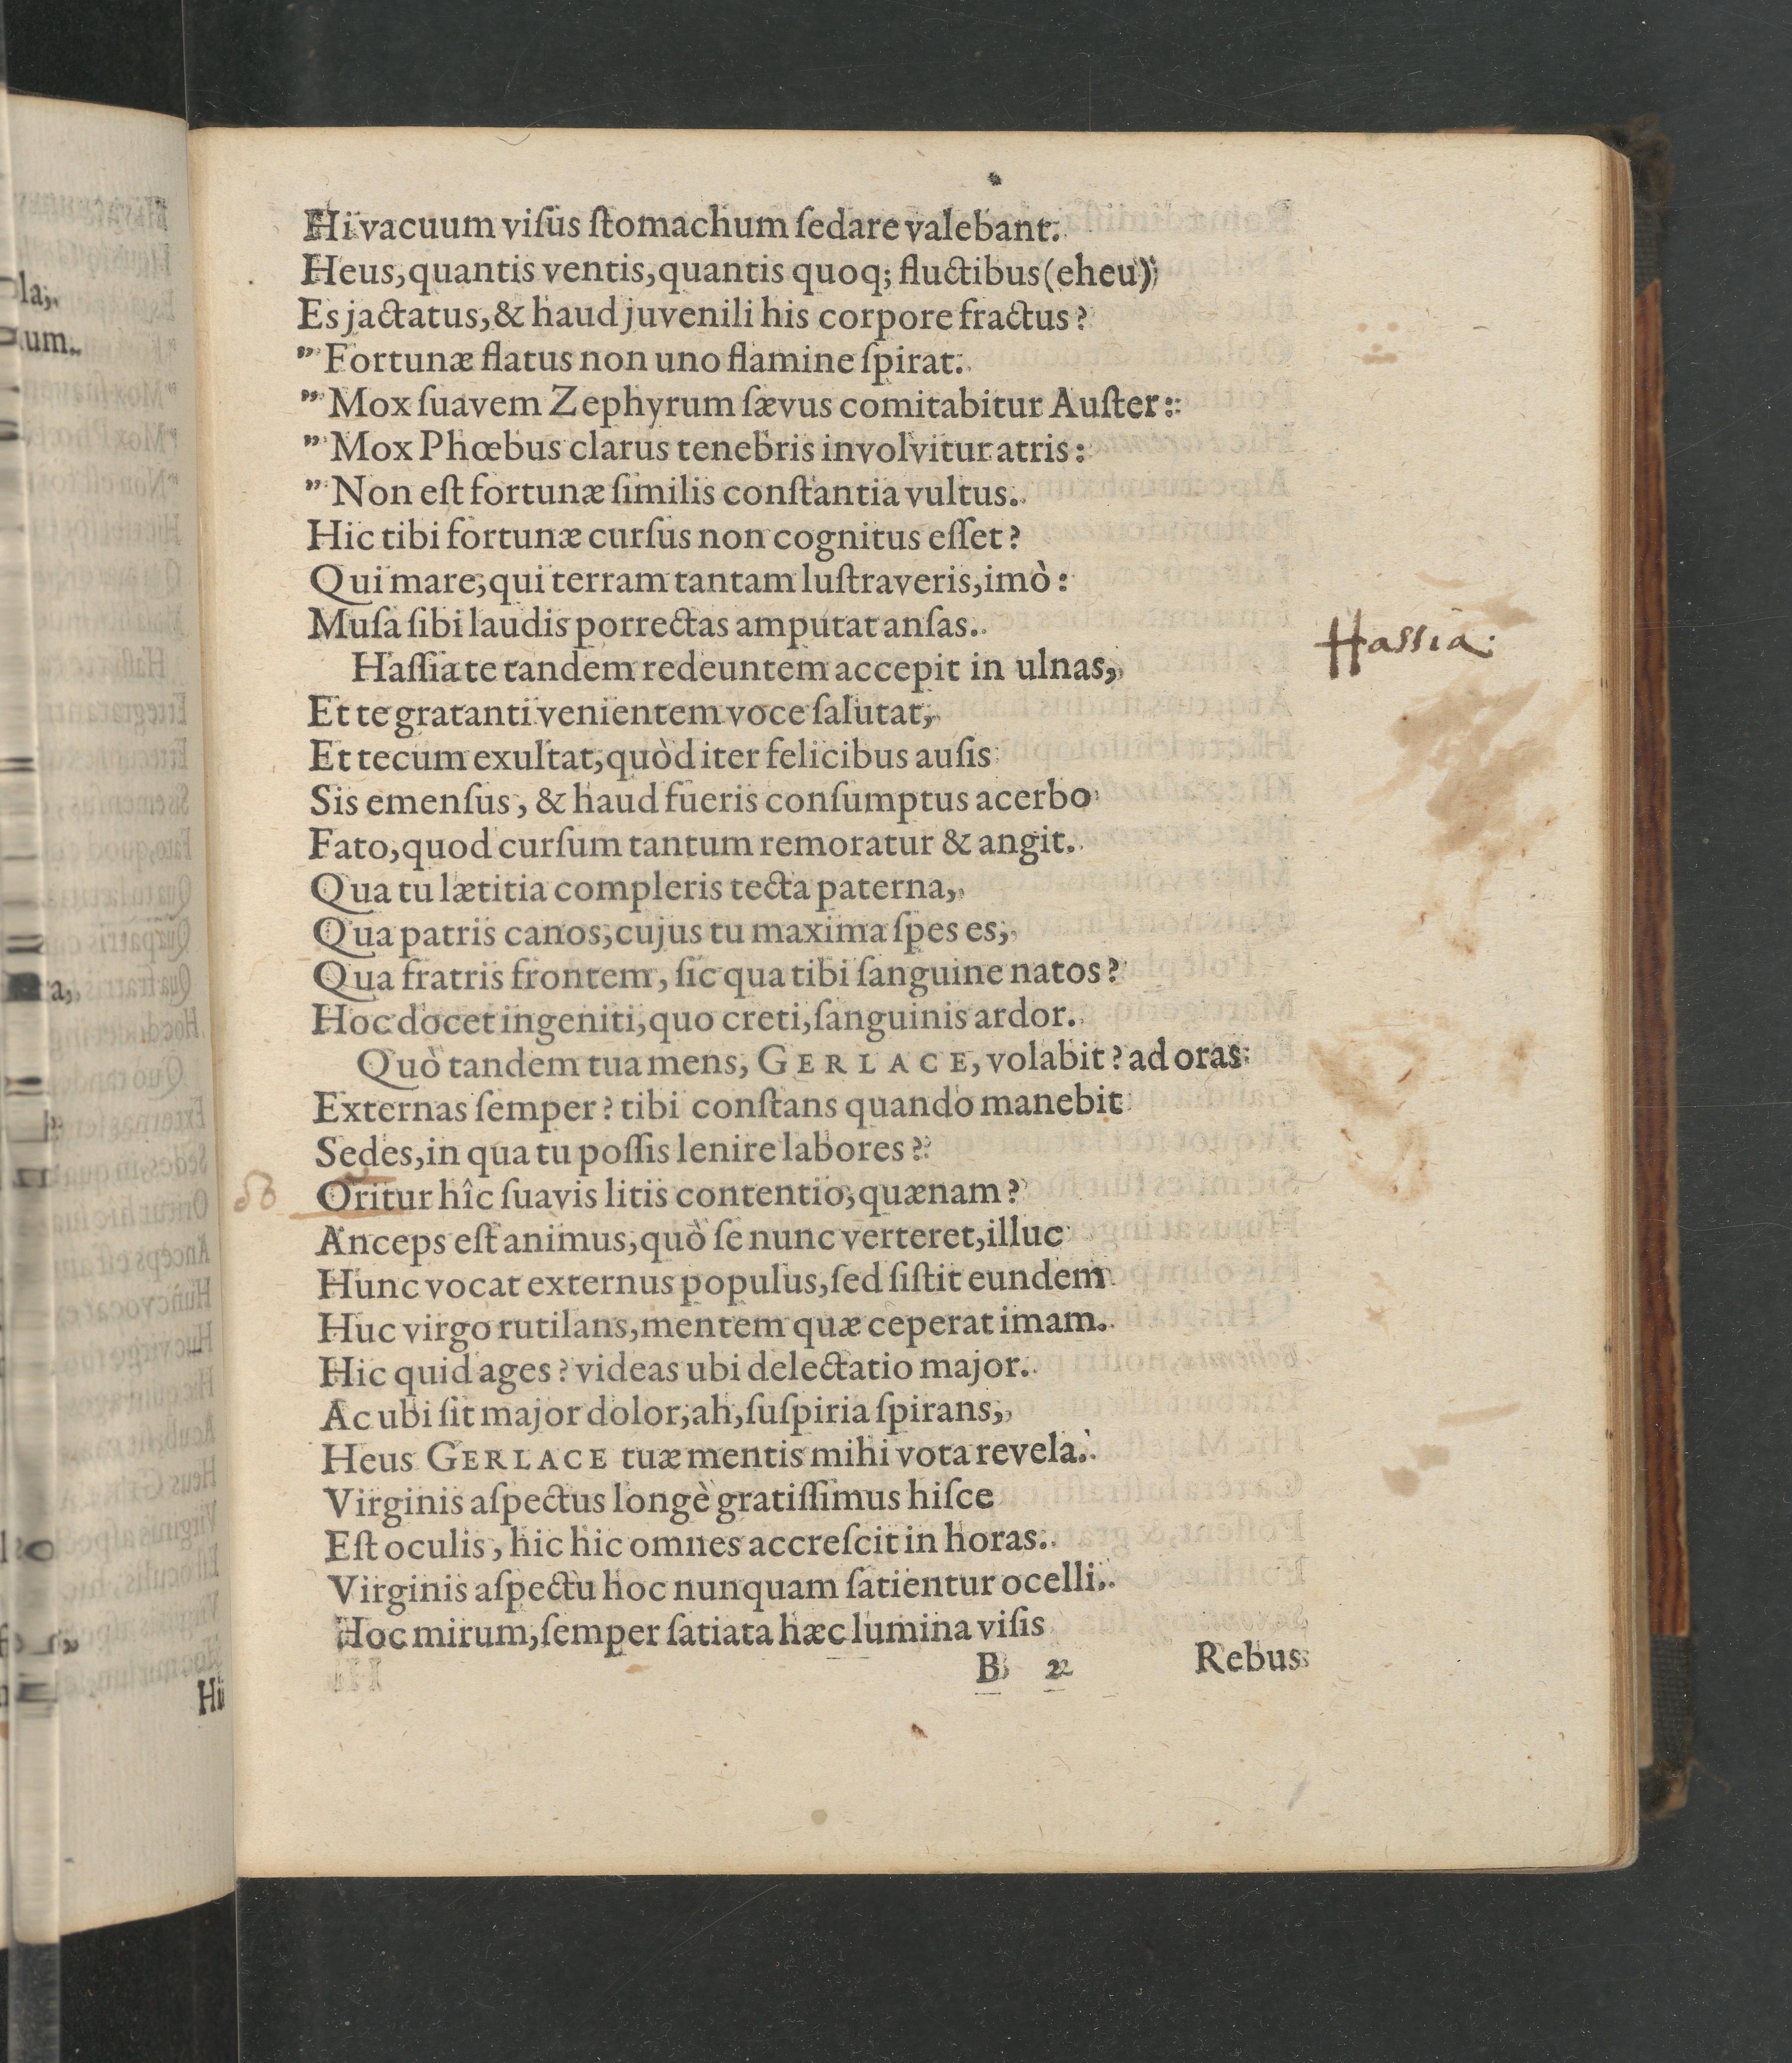 Hi vacuum viſus ſtomachum ſedare valebant.
Heus, quantis ventis, quantis quoq; fluctibus (eheu)
Es jactatus, & haud juvenili his corpore fractus?
” Fortunæ flatus non uno flamine ſpirat.
” Mox ſuavem Zephyrum ſævus comitabitur Auſter:
” Mox Phœbus clarus tenebris involvitur atris:
” Non eſt fortunæ ſimilis conſtantia vultus.
Hic tibi fortunæ curſus non cognitus eſſet?
Qui mare, qui terram tantam luſtraveris, imò:
Muſa ſibi laudis porrectas amputat anſas.
Haſſia te tandem redeuntem accepit in ulnas,
Hassia.
Et te gratanti venientem voce ſalutat,
Et tecum exultat, quòd iter felicibus auſis
Sis emenſus, & haud fueris conſumptus acerbo
Fato, quod curſum tantum remoratur & angit.
Qua tu lætitia compleris tecta paterna,
Qua patris canos, cujus tu maxima ſpes es,
Qua fratris frontem, ſic qua tibi ſanguine natos?
Hoc docet ingeniti, quo creti, ſanguinis ardor.
Quò tandem tua mens, GERLACE, volabit? ad oras
Externas ſemper? tibi conſtans quando manebit
Sedes, in qua tu poſſis lenire labores?
Oritur hîc ſuavis litis contentio, quænam?
Anceps eſt animus, quò ſe nunc verteret, illuc
Hunc vocat externus populus, ſed ſiſtit eundem
Huc virgo rutilans, mentem quæ ceperat imam.
Hic quid ages? videas ubi delectatio major.
Ac ubi ſit major dolor, ah, ſuſpiria ſpirans,
Heus GERLACE tuæ mentis mihi vota revela.
Virginis aſpectus longè gratiſſimus hiſce
Eſt oculis, hic hic omnes accreſcit in horas.
Virginis aſpectu hoc nunquam ſatientur ocelli.
Hoc mirum, ſemper ſatiata hæc lumina viſis
B 2 Rebus
la,
um.
a,
Hi